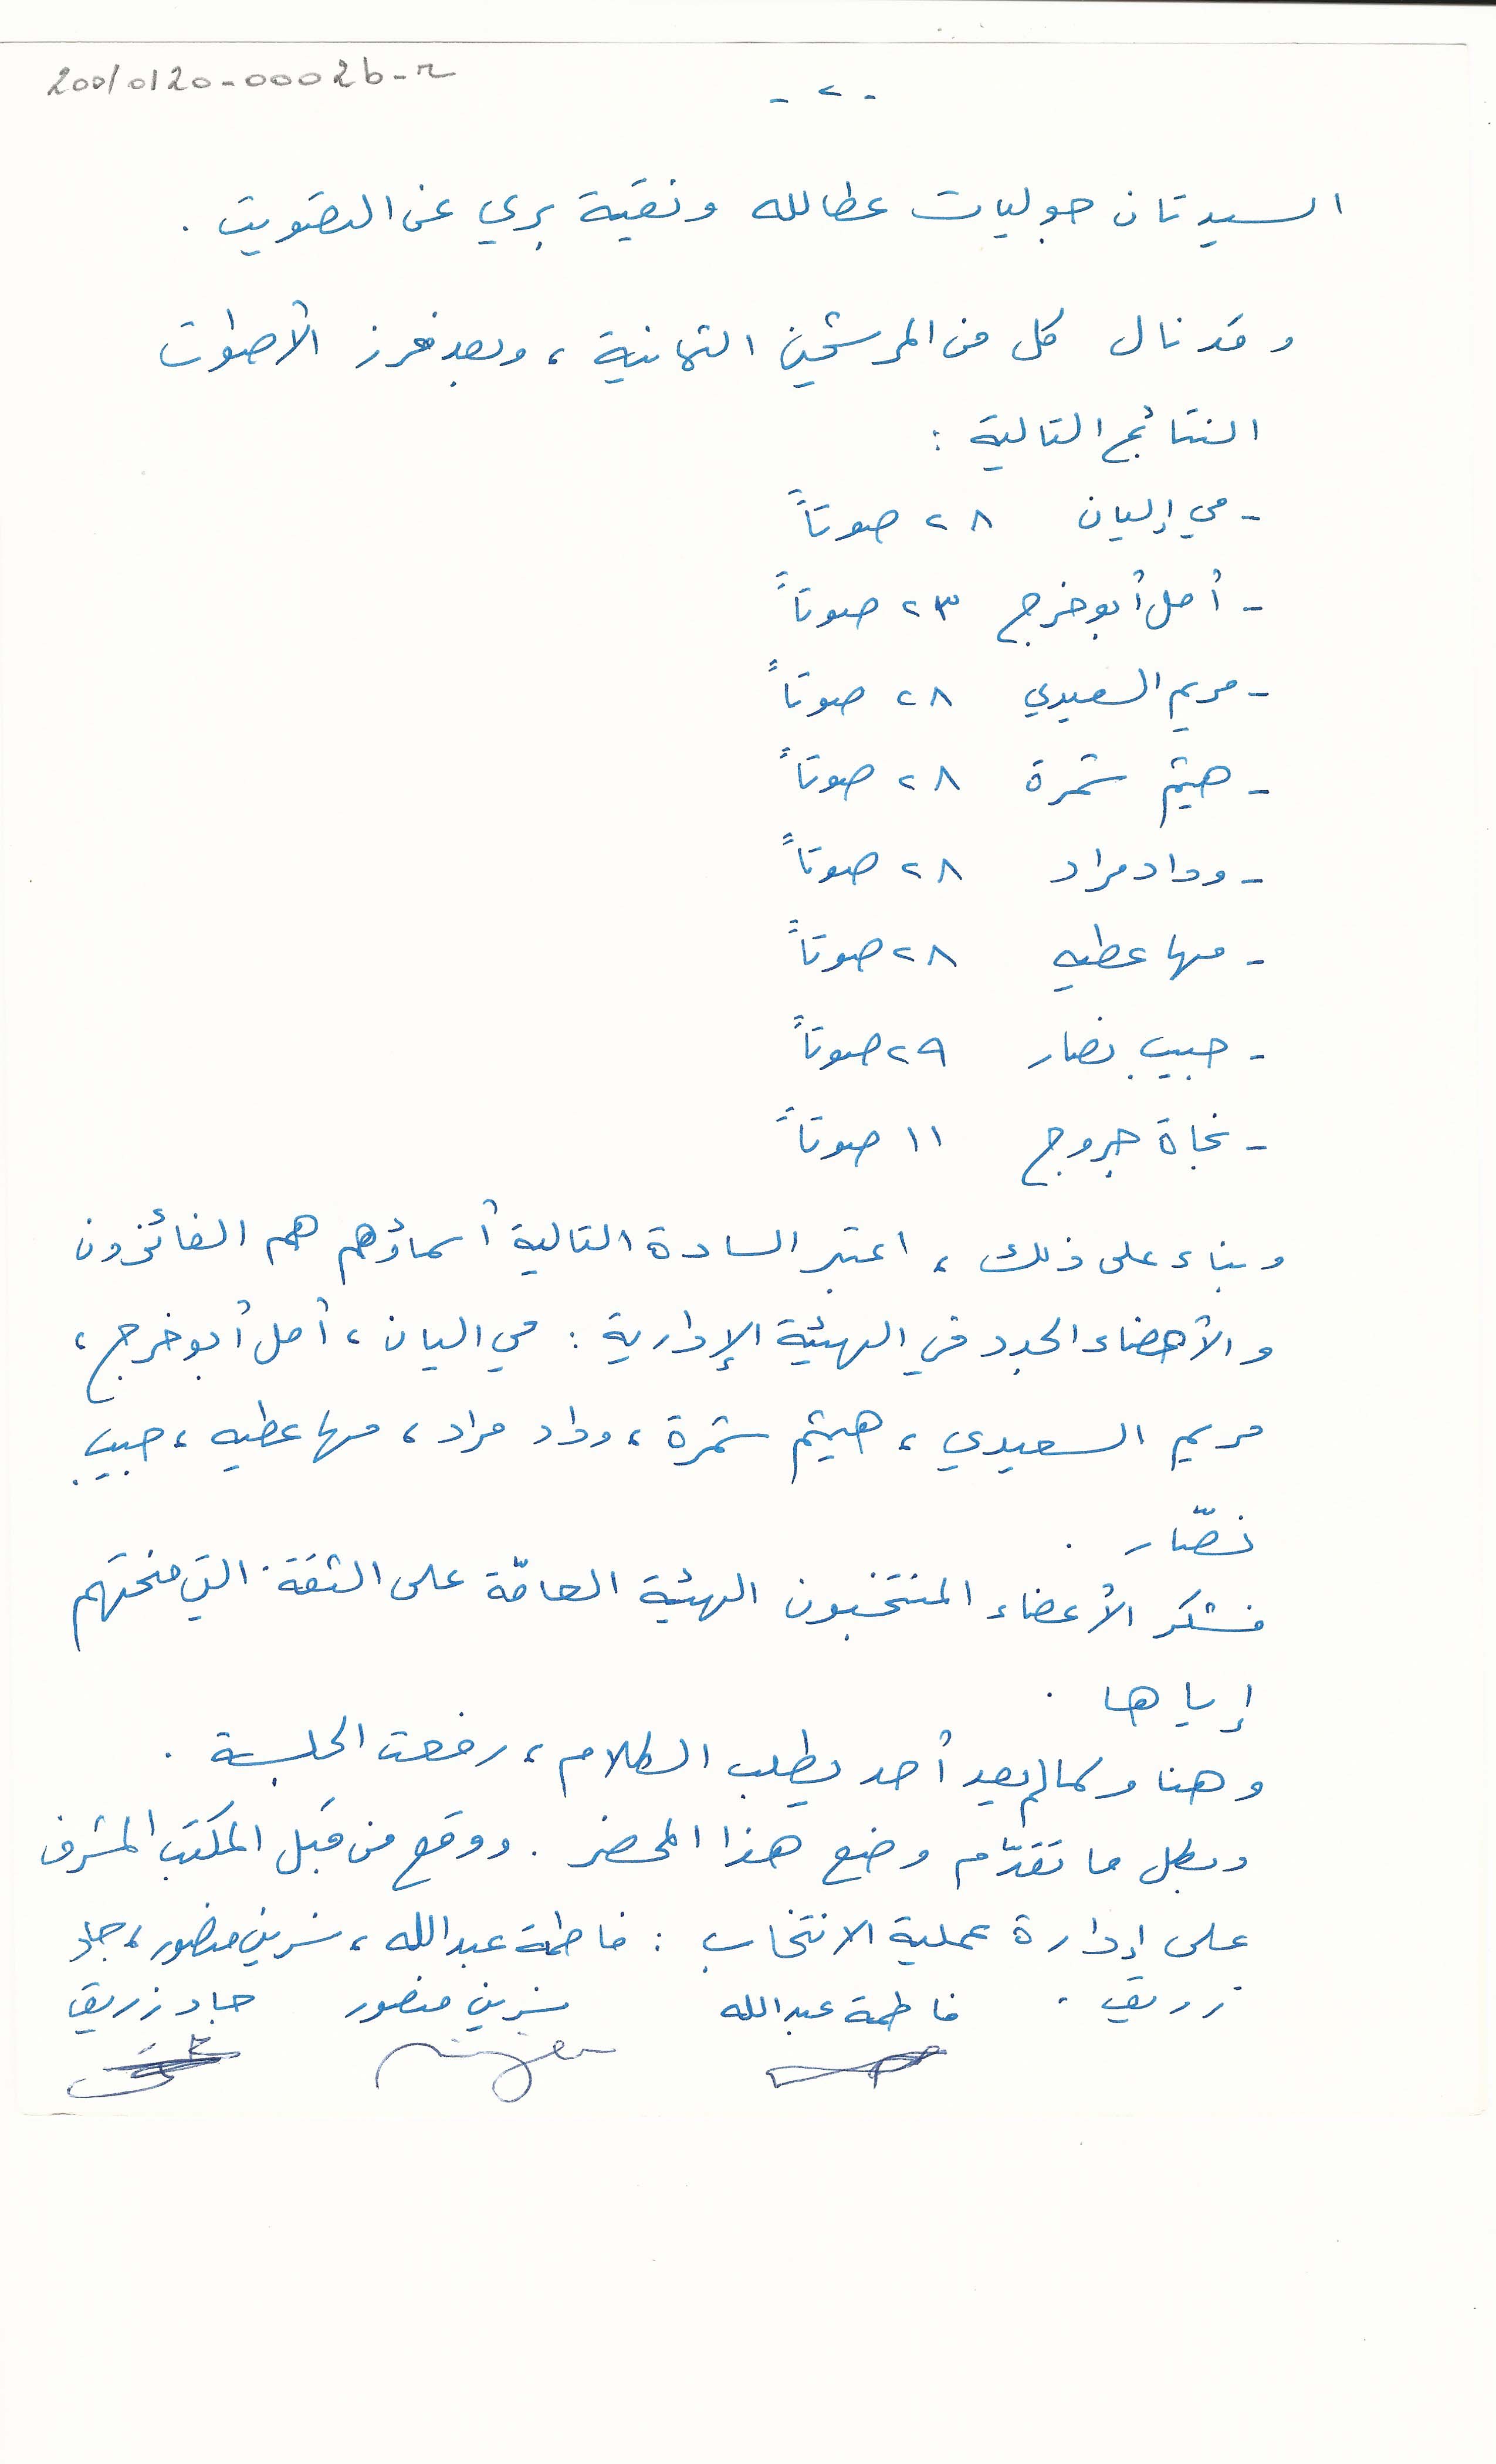 20010120-00026-r
- ٢ -
السيدتان جوليات عطالله ونقية بري عن التصويت .
وقد نال كل من المرشحين الثمانية ، وبعد فرز الأصوات
النتائج التالية :
- مي إليان ٢٨ صوتاً
- أمل أبو خزج ٢٣ صوتاً
- مريم السعيدي ٢٨ صوتاً
- هيثم شمرة ٢٨ صوتاً
- وداد مراد ٢٨ صوتاً
- مها عطيه ٢٨ صوتاً
- حبيب نصار ٢٩ صوتاً
- نجاة جروج ١١ صوتاً
وبناء على ذلك ، اعتبر السادة التالية أسماؤهم هم الفائزون
والأعضاء الجدد في الهيئة الإدارية : مي اليان ، أمل أبو خزج ،
مريم السعيدي ، هيثم شمرة ، وداد مراد ، مها عطيه ، حبيب
نصّار .
فشكر الأعضاء المنتخبون الهيئة العامّة على الثقة التي منحتهم
إياها .
وهنا وكما لم يعد أحد يطلب الكلام ، رفعت الجلسة .
وبكل ما تقدّم وضع هذا المحضر . ووقع من قبل المكتب المشرف
على إدارة عملية الانتخاب : فاطمة عبدالله ، نسرين منصور ، جاد
زريق .
فاطمة عبدالله نسرين منصور جاد زريق